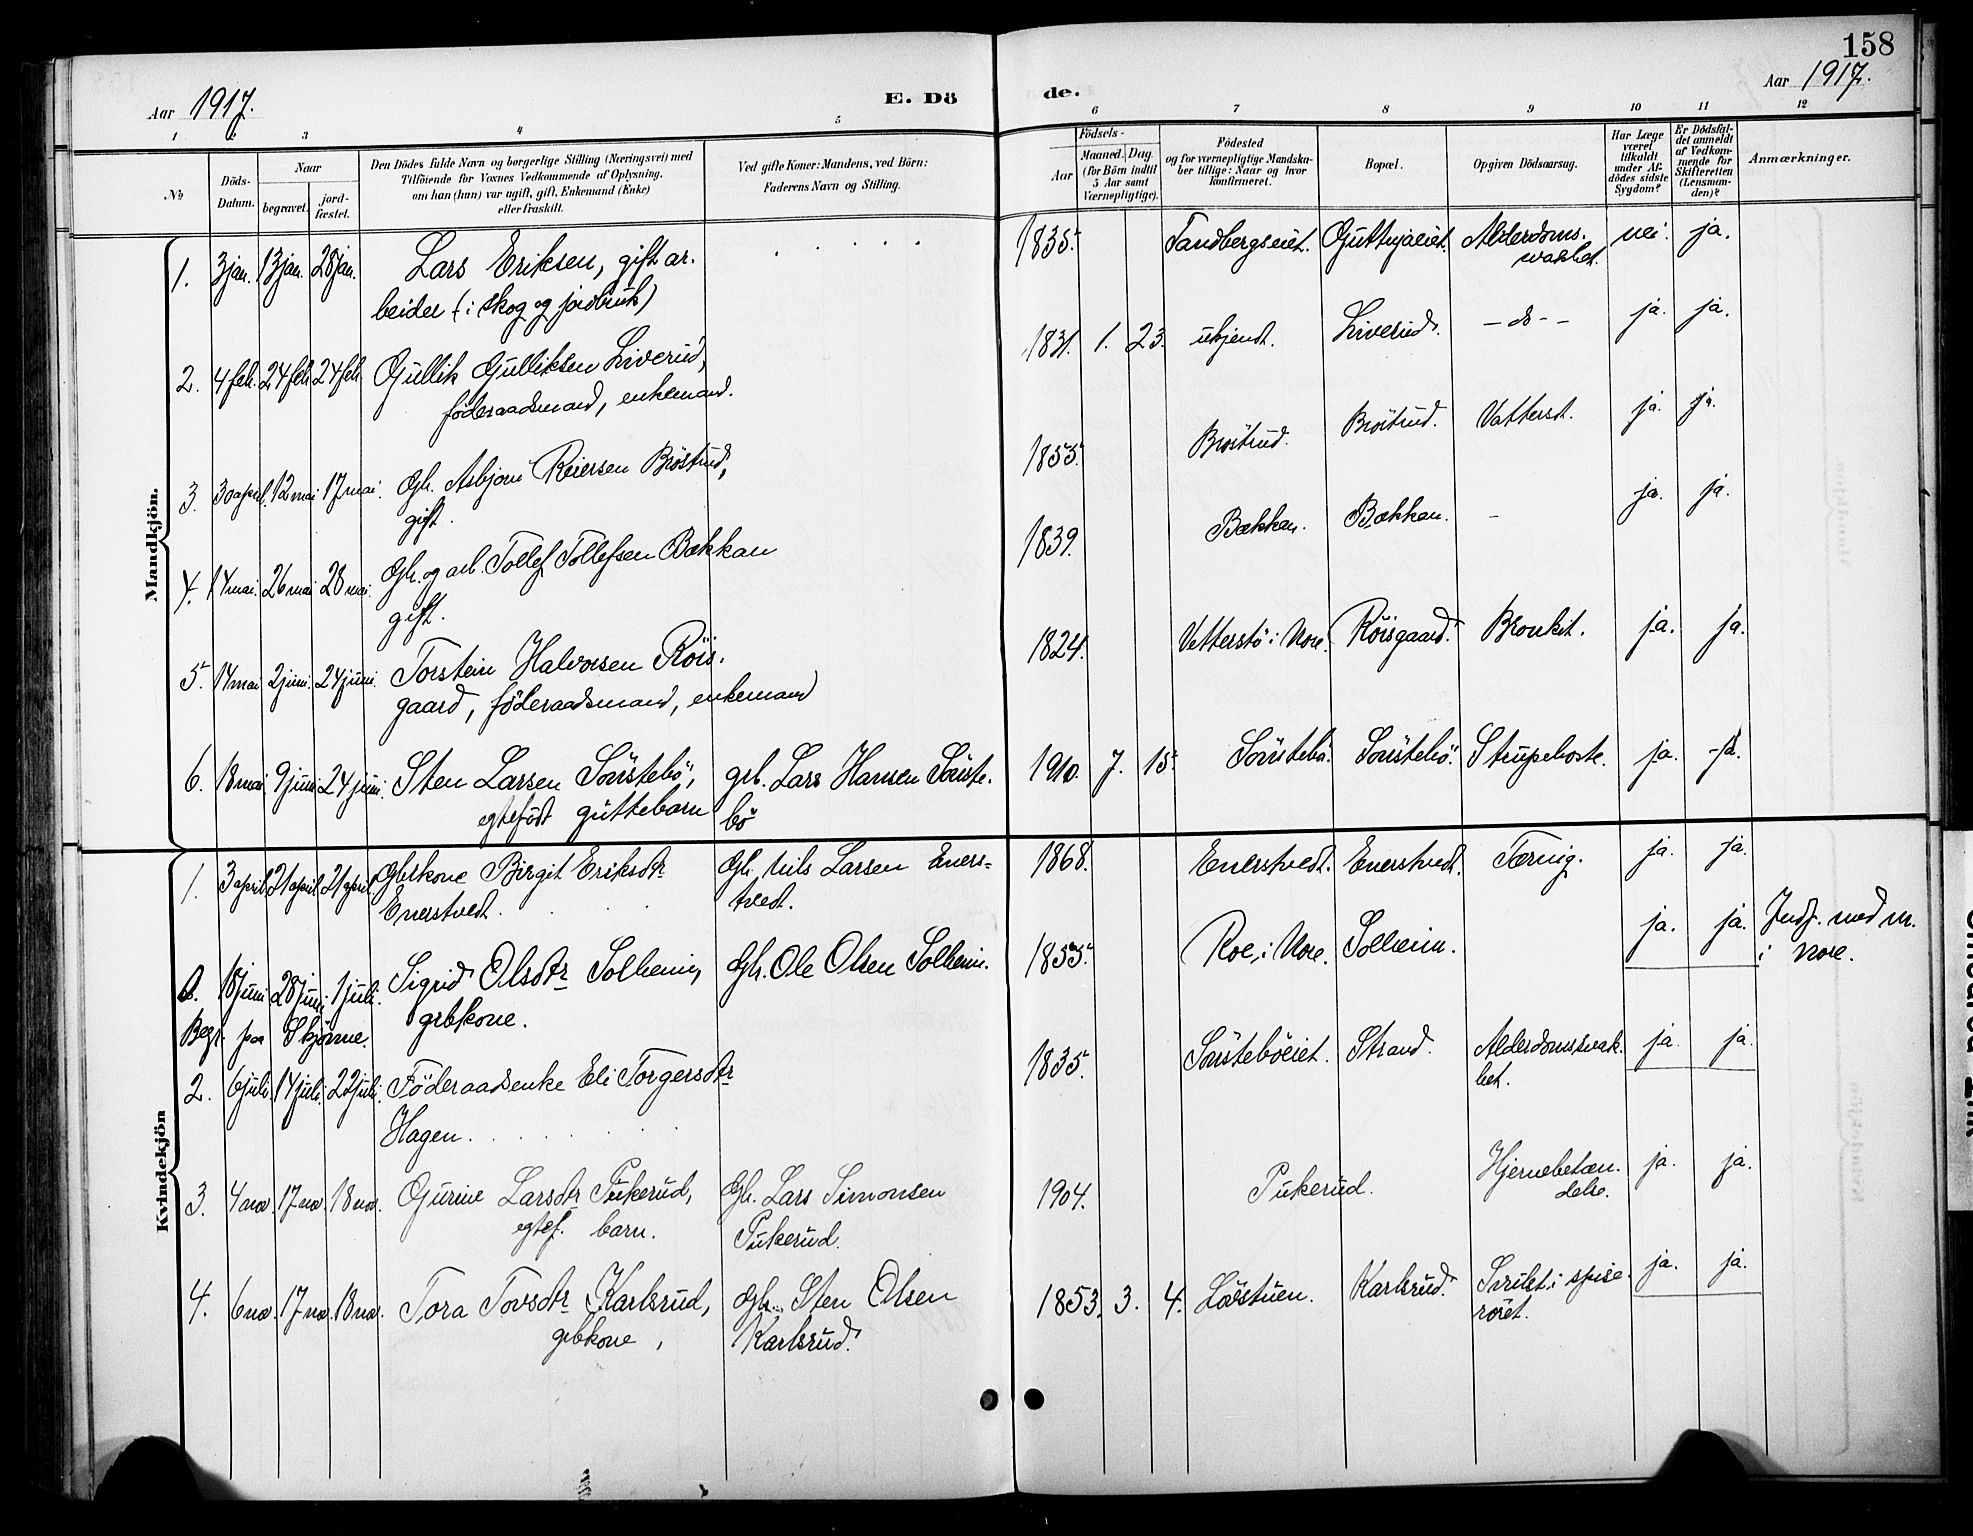 158
Aar 1917.
E. Dö
de.
Aar 1917.
1 2 3 4 5 6 7 8 9 10 11 12
No
Döds-
Datum.
Naar
begravet.
jord-
fæstet.
Den Dödes fulde Navn og borgerlige Stilling (Næringsvei) med
Tilföiende for Voxnes Vedkommende af Oplysning,
om han (hun) var ugift, gift, Enkemand (Enke)
eller fraskilt.
Ved gifte Koner: Mandens, ved Börn:
Faderens Navn og Stilling.
Födsels-
Aar
Maaned. Dag.
(for Börn indtil
5 Aar samt
Værnepligtige).
Födested
og for værnepligtige Mandska-
ber tillige: Naar og hvor
konfirmeret.
Bopæl.
Opgiven Dödsaarsag.
Har Læge
været
tilkaldt
under Af-
dödes sidste
Sygdom?
Er Dödsfal-
det anmeldt
af Vedkom-
mende for
Skifteretten
(Lensman-
den)?
Anmærkninger.
Mandkjön.
1. 3 jan. 13 jan. 28 jan. Lars Eriksen, gift ar- 1835. Tandbergseiet. Alderdoms- nei. ja.
beider (i skog og jordbruk)
2. 4 feb. 24 feb. 24 feb. Gullik Gulliksen Liverud, 1831. 1. 23. ukjendt. Liverud. - do - - ja. ja.
föderaadsmand, enkemand.
3. 30 april. 12 mai 17 mai. Gb. Asbjörn Reiersen Bröstrud, 1855. Vattersot. ja. ja.
gift.
4. 14 mai. 26 mai 28 mai. Gb. og arb. Tollef Tollefsen Bækkan 1839. Bækkan. Bækkan. - ja. ja.
gift.
5. 14 mai 2 juni. 24 juni. Torstein Halvorsen Röis- 1824. Vetterstö i Nore. Röisgaard. Bronkit. ja. ja.
gaard, föderaadsmand, enkemand
6. 18 mai 9 juni 24 juni. Sten Larsen Sörstebö, grb. Lars Hansen Sörste- 1910. 7. 15. Sörstebö. Sörstebö. Strupehoste. ja. ja.
egtefödt guttebarn bö
Kvindekjön
1. 3 april 21 april 21 april Gbrkone Birgit Eriksdtr Gb. Nils Larsen Eners- 1868. Enerstvedt. Enerstvedt. Tæring. ja. ja.
Enerstvedt. tvedt.
18 juni 28 juni 1 juli. Sigrid Olsdtr Solheim, Gb. Ole Olsen Solheim. 1855. Roe, i Nore. Solheim. ja. ja. Indf. med nr.
grbkone. i Nore.
Begr. paa Skjönne.
2. 6 juli. 14 juli. 22 juli. Föderaadsenke Eli Torgersdtr 1835. Sörsteböeiet. Strand. Alderdomssvak- ja. ja.
Hagen. het.
3. 4 nov. 17 nov. 18 nov. Gurine Larsdtr Pukerud, Gb. Lars Simonsen 1904. Pukerud. Hjernebetæn- ja. ja.
egtef. barn. Pukerud. delse.
4. 6 nov. 17 nov. 18 nov. Tora Tovsdtr Karlsrud, Gb. Sten Olsen 1853. 3. 4. Lövstuen. Karlsrud. i spise- ja. ja.
grbkone, Karlsrud. röret.